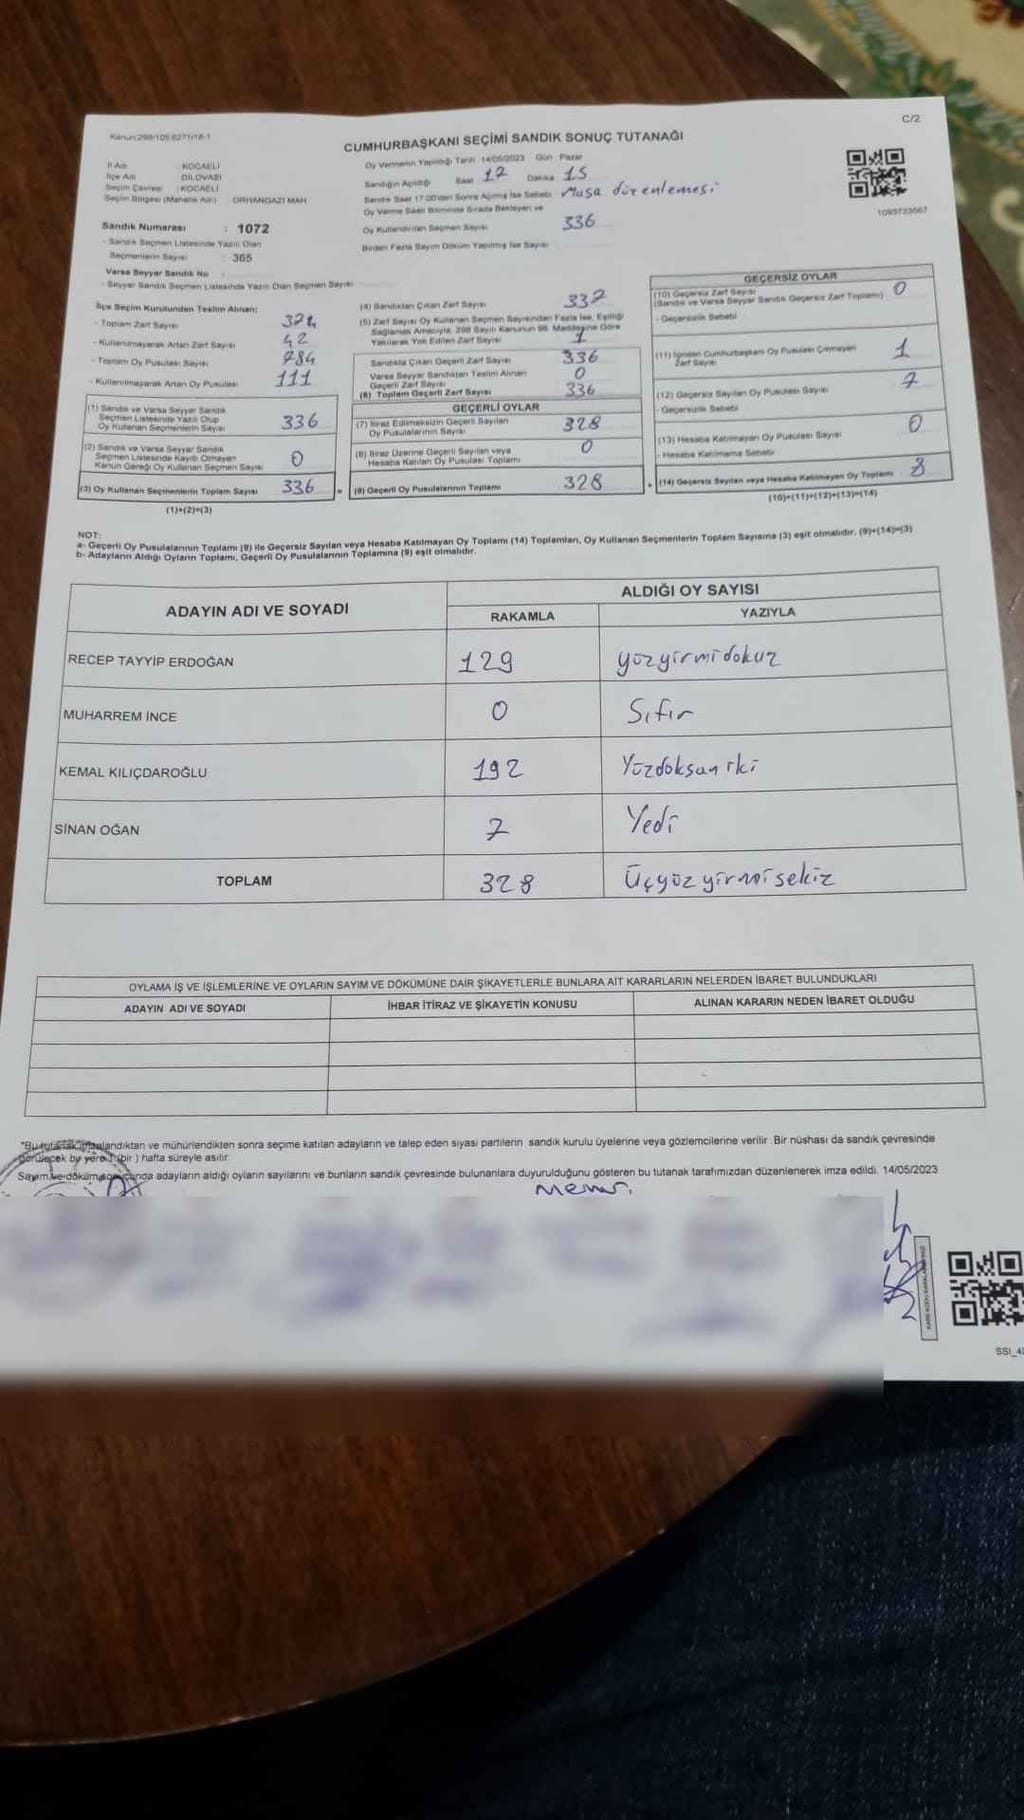 Kanun:298/105 6271/18-1
C/2
CUMHURBAŞKANI SEÇİMİ SANDIK SONUÇ TUTANAĞI
İl Adı : KOCAELİ
İlçe Adı : DİLOVASI
Seçim Çevresi : KOCAELİ
Seçim Bölgesi (Mahalle Adı) ORHANGAZİ MAH
Oy Vermenin Yapıldığı Tarih 14/05/2023 Gün : Pazar
Sandığın Açıldığı Saat 17 Dakika 15
Sandık Saat 17:00'den Sonra Açılmış İse Sebebi Masa düzenlemesi
Oy Verme Saati Bitiminde Sırada Bekleyen ve
Oy Kullandırılan Seçmen Sayısı 336
Birden Fazla Sayım Döküm Yapılmış İse Sayısı
1093733567
Sandık Numarası : 1072
- Sandık Seçmen Listesinde Yazılı Olan
Seçmenlerin Sayısı : 365
Varsa Seyyar Sandık No :
- Seyyar Sandık Seçmen Listesinde Yazılı Olan Seçmen Sayısı
İlçe Seçim Kurulundan Teslim Alınan;
- Toplam Zarf Sayısı
- Kullanılmayarak Artan Zarf Sayısı 42
- Toplam Oy Pusulası Sayısı
- Kullanılmayarak Artan Oy Pusulası 111
(1) Sandık ve Varsa Seyyar Sandık
Seçmen Listesinde Yazılı Olup
Oy Kullanan Seçmenlerin Sayısı 336
(2) Sandık ve Varsa Seyyar Sandık
Seçmen Listesinde Kayıtlı Olmayan
Kanun Gereği Oy Kullanan Seçmen Sayısı 0
(3) Oy Kullanan Seçmenlerin Toplam Sayısı 336 =
(1)+(2)=(3)
(4) Sandıktan Çıkan Zarf Sayısı 337
(5) Zarf Sayısı Oy Kullanan Seçmen Sayısından Fazla İse, Eşitliği
Sağlamak Amacıyla, 298 Sayılı Kanunun 98. Maddesine Göre
Yakılarak Yok Edilen Zarf Sayısı 1
Sandıkta Çıkan Geçerli Zarf Sayısı 336
Varsa Seyyar Sandıkten Teslim Alınan
Geçerli Zarf Sayısı 0
(6) Toplam Geçerli Zarf Sayısı 336
GEÇERLİ OYLAR
(7) İtiraz Edilmeksizin Geçerli Sayılan
Oy Pusulalarının Sayısı 328
(8) İtiraz Üzerine Geçerli Sayılan veya
Hesaba Katılan Oy Pusulası Toplamı 0
(9) Geçerli Oy Pusulalarının Toplamı 328 +
GEÇERSİZ OYLAR
(10) Geçersiz Zarf Sayısı
(Sandık ve Varsa Seyyar Sandık Geçersiz Zarf Toplamı) 0
- Geçersizlik Sebebi
(11) İçinden Cumhurbaşkanı Oy Pusulası Çıkmayan
Zarf Sayısı 1
(12) Geçersiz Sayılan Oy Pusulası Sayısı 7
- Geçersizlik Sebebi
(13) Hesaba Katılmayan Oy Pusulası Sayısı 0
- Hesaba Katılmama Sebebi
(14) Geçersiz Sayılan veya Hesaba Katılmayan Oy Toplamı 8
(10)+(11)+(12)+(13)=(14)
NOT:
a- Geçerli Oy Pusulalarının Toplamı (9) ile Geçersiz Sayılan veya Hesaba Katılmayan Oy Toplamı (14) Toplamları, Oy Kullanan Seçmenlerin Toplam Sayısına (3) eşit olmalıdır. (9)+(14)=(3)
b- Adayların Aldığı Oyların Toplamı, Geçerli Oy Pusulalarının Toplamına (9) eşit olmalıdır.
ADAYIN ADI VE SOYADI
ALDIĞI OY SAYISI
RAKAMLA YAZIYLA
RECEP TAYYİP ERDOĞAN 129 yüzyirmidokuz
MUHARREM İNCE 0 Sıfır
KEMAL KILIÇDAROĞLU 192 Yüzdoksan iki
SİNAN OĞAN 7 Yedi
TOPLAM 328 Üçyüz yirmi sekiz
OYLAMA İŞ VE İŞLEMLERİNE VE OYLARIN SAYIM VE DÖKÜMÜNE DAİR ŞİKAYETLERLE BUNLARA AİT KARARLARIN NELERDEN İBARET BULUNDUKLARI
ADAYIN ADI VE SOYADI İHBAR İTİRAZ VE ŞİKAYETİN KONUSU ALINAN KARARIN NEDEN İBARET OLDUĞU
*Bu tutanak imzalandıktan ve mühürlendikten sonra seçime katılan adayların ve talep eden siyasi partilerin sandık kurulu üyelerine veya gözlemcilerine verilir. Bir nüshası da sandık çevresinde
görülecek bir yere 1 (bir ) hafta süreyle asılır
Sayım ve döküm sonucunda adayların aldığı oyların sayılarını ve bunların sandık çevresinde bulunanlara duyurulduğunu gösteren bu tutanak tarafımızdan düzenlenerek imza edildi. 14/05/2023
Memur.